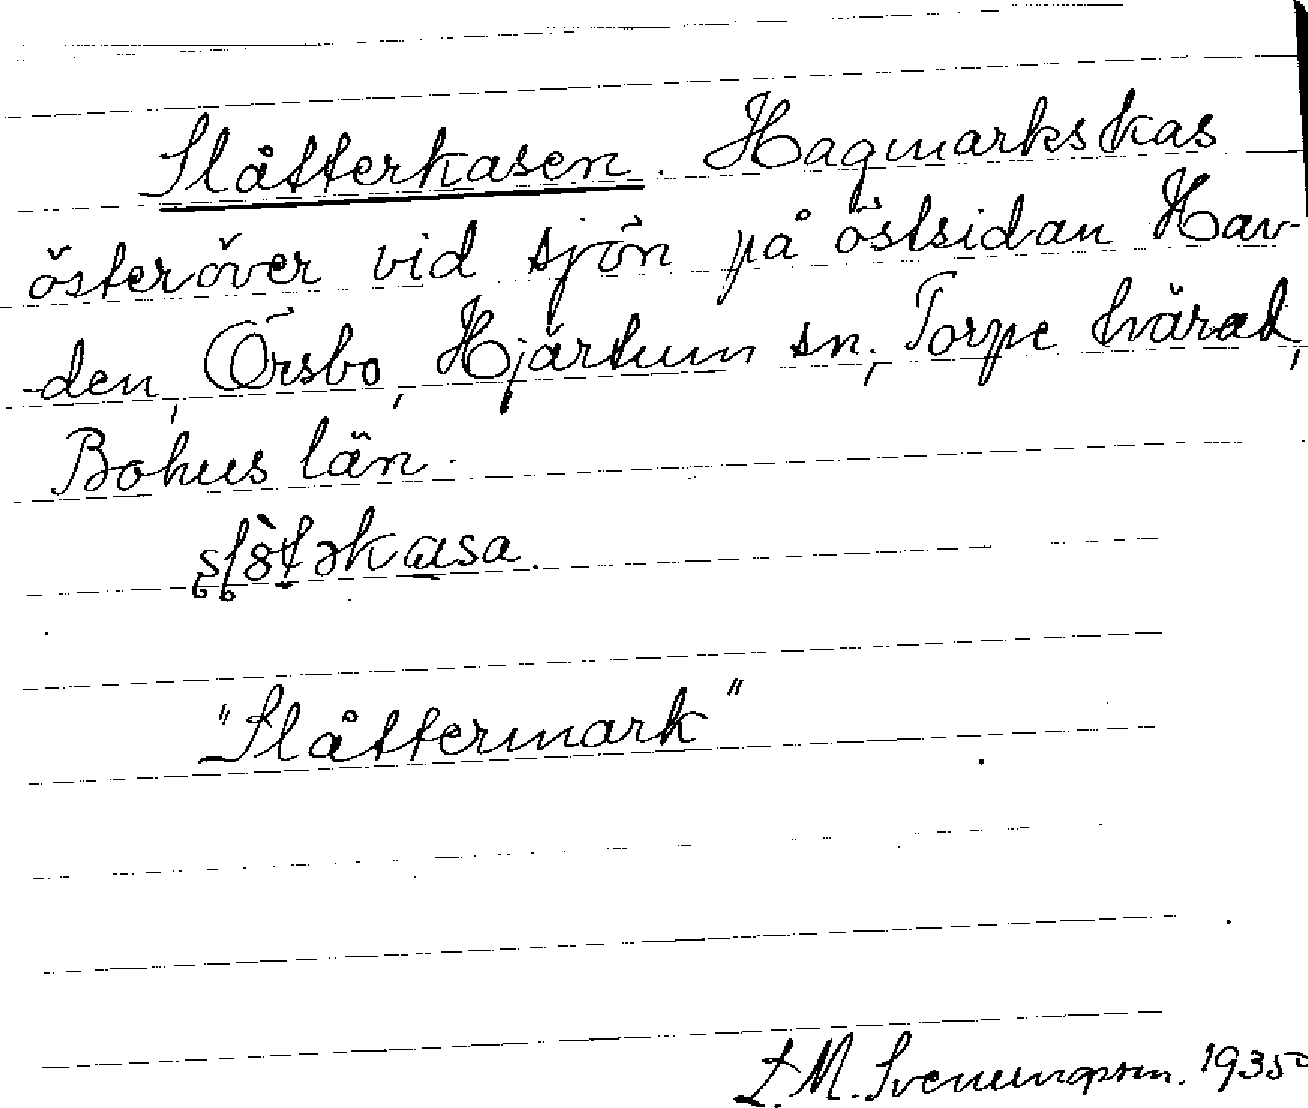 Slåtterkasen. Hagmarkskas
österöver vid sjön på östsidan Hav-
den, Örsbo, Hjärtum sn, Torpe härad,
Bohus län.
"Slåttermark"
L.M. Svenungson. 1935